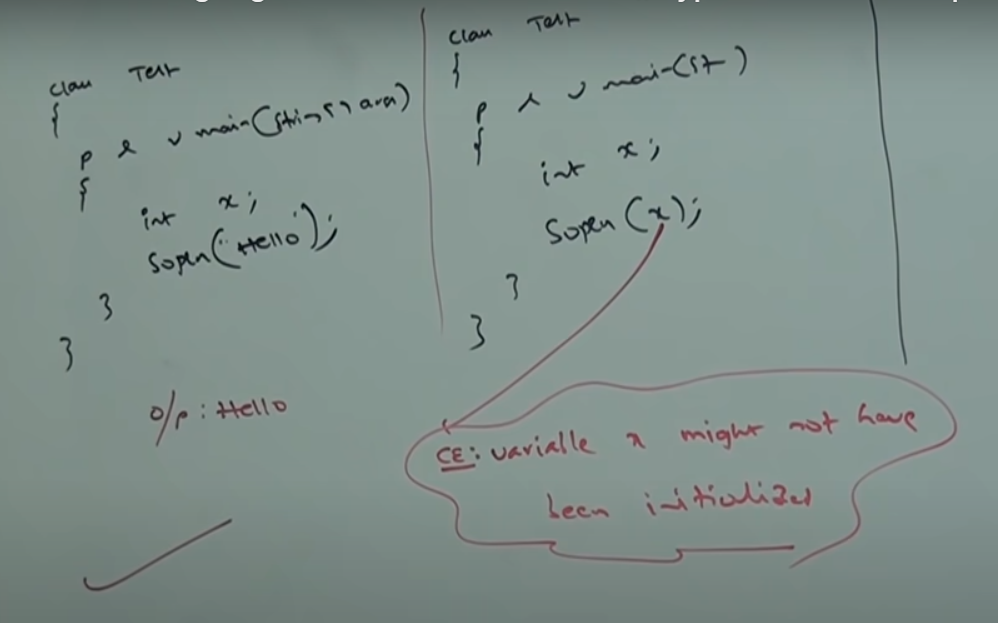 class Test
{
p s v main(String[] args)
{
int x;
Sopln("Hello");
}
}
o/p : Hello
class Test
{
p s v main(St )
{
int x;
Sopln(x);
}
}
CE: variable x might not have
been initialized